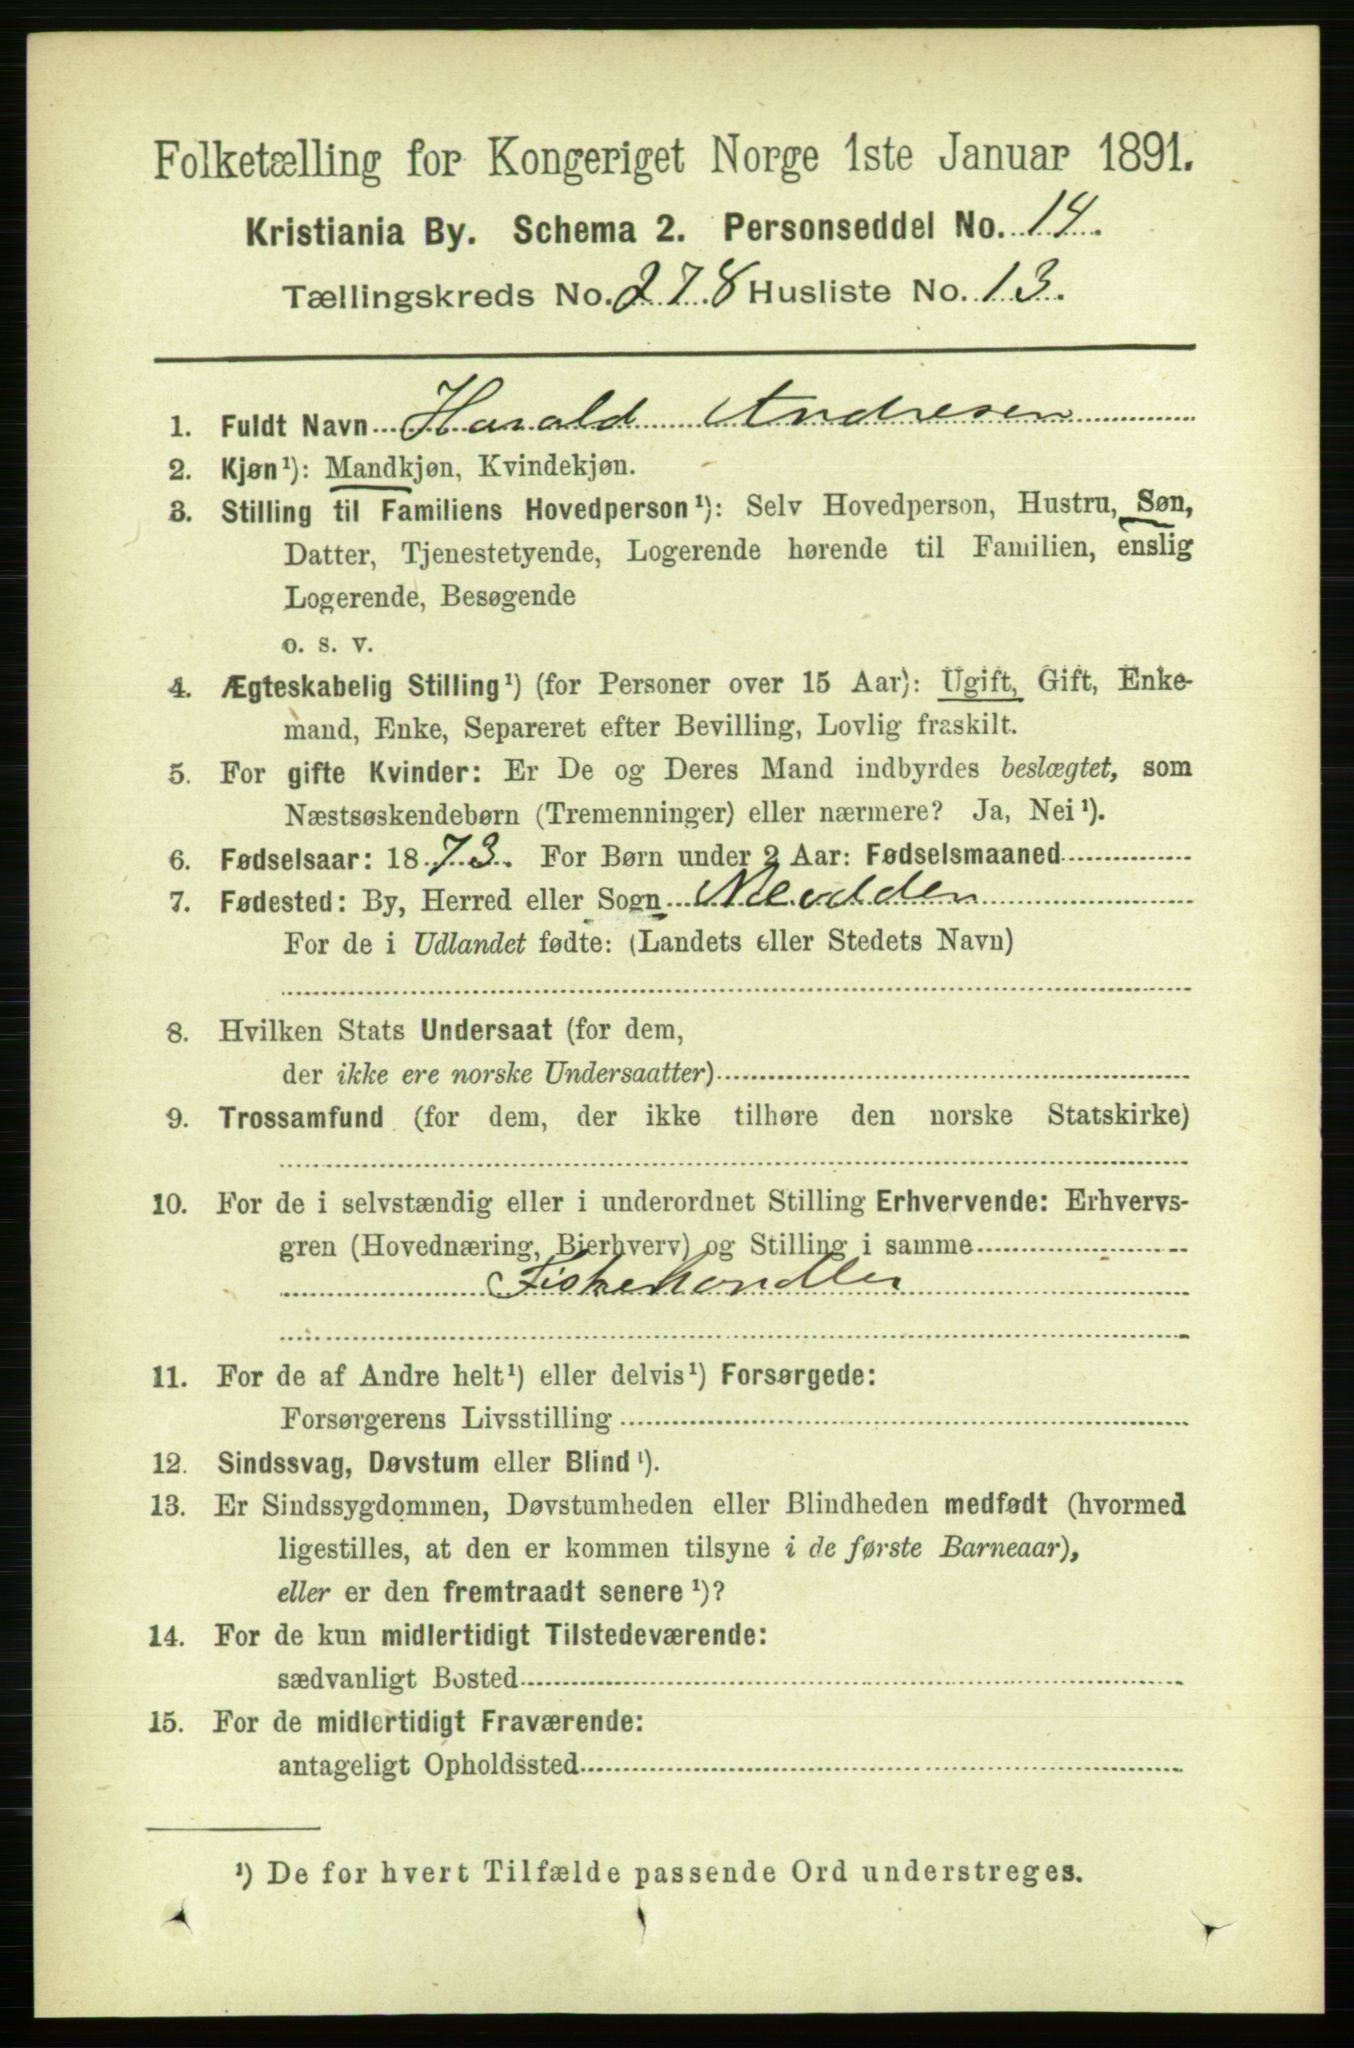 Folketælling for Kongeriget Norge 1ste Januar 1891.
Kristiania By. Schema 2. Personseddel No. 14.
Tællingskreds No. 278 Husliste No. 13.
1. Fuldt Navn Harald Andresen
2. Kjøn¹): Mandkjøn, Kvindekjøn.
3. Stilling til Familiens Hovedperson¹): Selv Hovedperson, Hustru, Søn,
Datter, Tjenestetyende, Logerende hørende til Familien, enslig
Logerende, Besøgende
o. s. v.
4. Ægteskabelig Stilling¹) (for Personer over 15 Aar): Ugift, Gift, Enke-
mand, Enke, Separeret efter Bevilling, Lovlig fraskilt.
5. For gifte Kvinder: Er De og Deres Mand indbyrdes beslægtet, som
Næstsøskendebørn (Tremenninger) eller nærmere? Ja, Nei¹).
6. Fødselsaar: 1873. For Børn under 2 Aar: Fødselsmaaned
7. Fødested: By, Herred eller Sogn
For de i Udlandet fødte: (Landets eller Stedets Navn)
8. Hvilken Stats Undersaat (for dem,
der ikke ere norske Undersaatter)
9. Trossamfund (for dem, der ikke tilhøre den norske Statskirke)
10. For de i selvstændig eller i underordnet Stilling Erhvervende: Erhvervs-
gren (Hovednæring, Bierhverv) og Stilling i samme
Fiskehandler
11. For de af Andre helt¹) eller delvis¹) Forsørgede:
Forsørgerens Livsstilling
12. Sindssvag, Døvstum eller Blind¹).
13. Er Sindssygdommen, Døvstumheden eller Blindheden medfødt (hvormed
ligestilles, at den er kommen tilsyne i de første Barneaar),
eller er den fremtraadt senere¹)?
14. For de kun midlertidigt Tilstedeværende:
sædvanligt Bosted
15. For de midlertidigt Fraværende:
antageligt Opholdssted
¹) De for hvert Tilfælde passende Ord understreges.